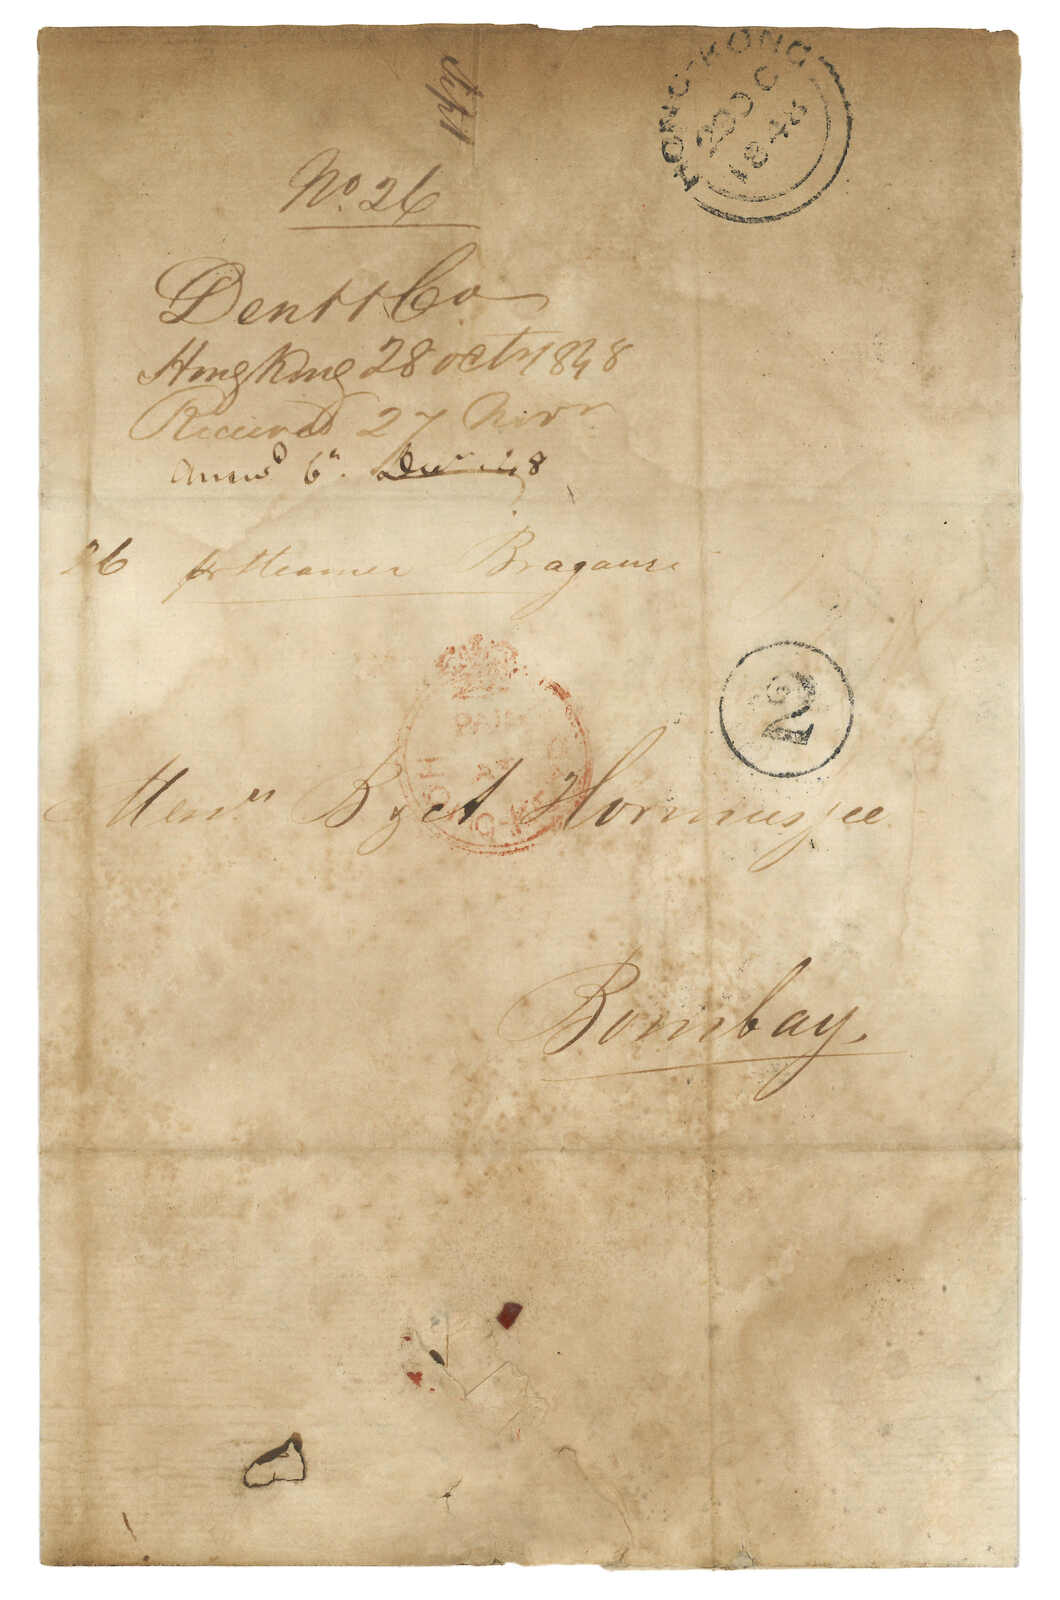 HONG-KONG
OC
1848
No. 26
Dent & Co
HongKong 28 octr 1848
Received 27 Novr
Answd 6th Decr 48
26 pr Steamer Braganza
PAID
HONG-KONG
2
Messrs B & A Hormusjee
Bombay.